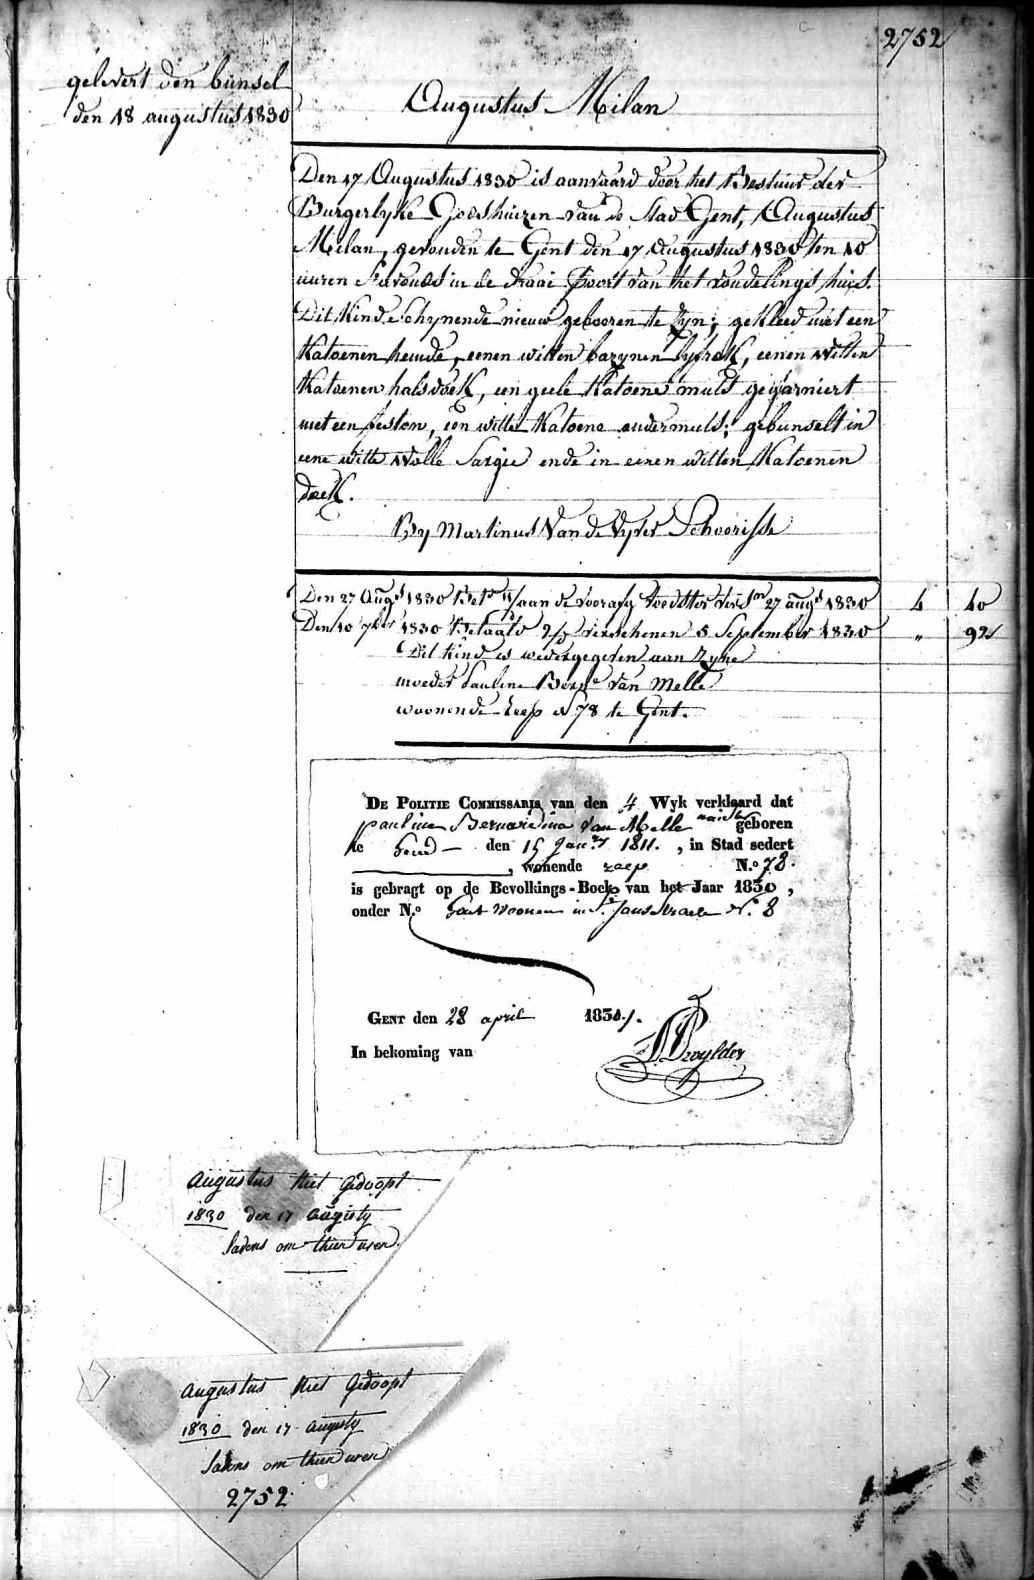 2752
gelevert den bunsel
den 18 augustus 1830
Augustus Milan
Den 17 Augustus 1830 is aanvaard door het Bestuur der
Burgerlyke Godshuizen van de Stad Gent, Augustus
Milan, gevonden te Gent den 17 Augustus 1830 ten 10
uuren s'avonds in de draai Poort van het vondelings huis.
Dit Kind schynende nieuw gebooren te zyn; gekleed met een
Katoenen hemde, eenen witten bazynen lyfrok, eenen witten
Katoenen halsdoek, een geele Katoene muts gegarniert
met een feston, een witte Katoene ondermuts; gebunselt in
eene witte Wolle Sargie ende in eenen witten Katoenen
doek.
By Martinus Van de Vyver Schoorisse
Den 27 Augt 1830 Bet. aan de voorafg Voedster 27 augt 1830 4 40
Den 10 7ber 1830 Betaald verschenen 5 September 1830 " 92
Dit Kind is wedergegeven aan Zyne
moeder Pauline Berne Van Melle
woonende Leep N 78 te Gent.
De Politie Commissaris van den 4 Wyk verklaard dat
pauline Bernardina Van Melle geboren
te Gend den 15 Janry 1811. , in Stad sedert
, wonende zaep N.o 78.
is gebragt op de Bevolkings-Boek van het Jaar 1830 ,
onder N.o woonen in St. Jans straete N.o 8
Gent den 28 april 1831.
In bekoming van
Augustus Niet Gedoopt
1830 den 17 augusty
Savens om thien uren.
Augustus Niet Gedoopt
1830 den 17 augusty
Savens om thien uren
2752.